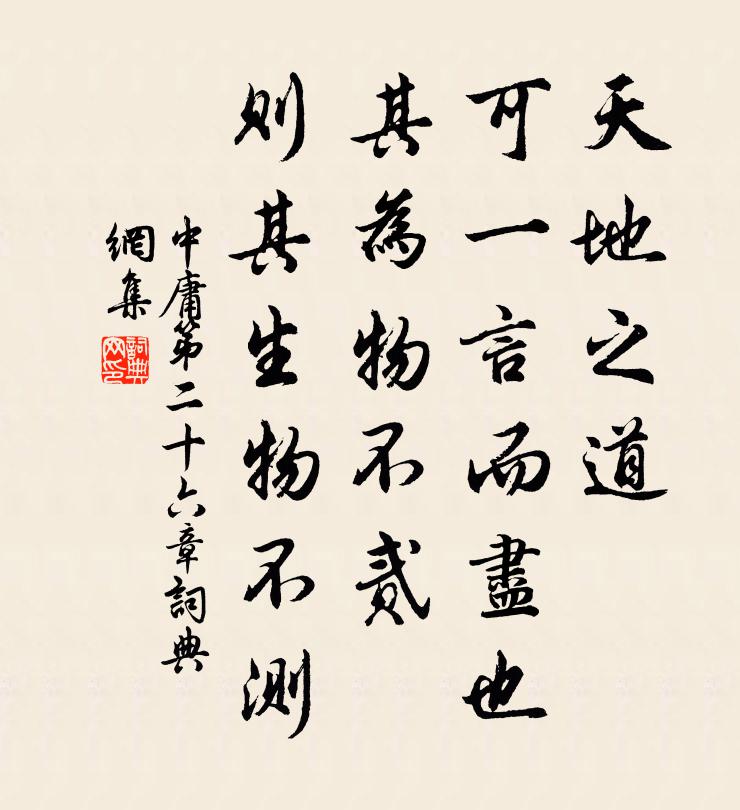 天地之道
可一言而盡也
其為物不貳
則其生物不測
中庸第二十六章詞典
網集
詞典
网印